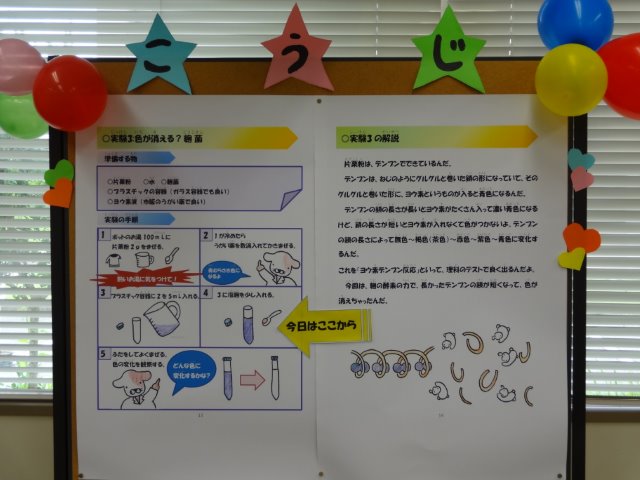 こうじ
○実験3:色が消える？麹菌
準備する物
○片栗粉 ○水 ○麹菌
○プラスチックの容器（ガラス容器でも良い）
○ヨウ素液（市販のうがい薬で良い）
実験の手順
1 ポットのお湯100mLに
片栗粉2gをまぜる。
熱いお湯に気をつけて！
2 1が冷めたら
うがい薬を数滴入れてかきまぜる。
3 プラスチック容器に2を5mL入れる。
4 3に麹菌を少し入れる。
今日はここから
5 ふたをしてよくまぜる。
色の変化を観察する。
どんな色に
変化するかな？
13
○実験3の解説
片栗粉は、デンプンでできているんだ。
デンプンは、ねじのようにグルグルと巻いた鎖の形になっていて、その
グルグルと巻いた形に、ヨウ素というものが入ると青色になるんだ。
デンプンの鎖の長さが長いとヨウ素がたくさん入って濃い青色になる
けど、鎖の長さが短いとヨウ素が入れなくて色がつかないよ。デンプン
の鎖の長さによって無色～褐色（茶色）～赤色～紫色～青色に変化す
るんだ。
これを「ヨウ素デンプン反応」といって、理科のテストで良く出るんだよ。
今回は、麹の酵素の力で、長かったデンプンの鎖が短くなって、色が
消えちゃったんだ。
14